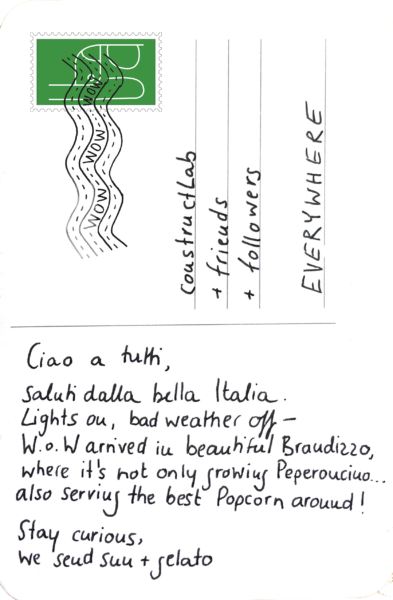 WOW
WOW
WOW
constructLab
+ friends
+ followers
EVERYWHERE
Ciao a tutti,
Saluti dalla bella Italia.
Lights on, bad weather off –
W.o.W arrived in beautiful Brandizzo,
where it's not only growing Peperoncino...
also serving the best Popcorn around!
Stay curious,
we send sun + gelato